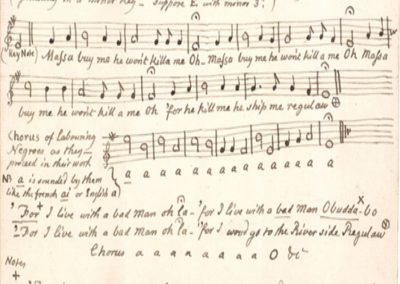 (... in a minor Key — suppose E. with minor 3: )
(Key Note) Massa buy me he won't killa me Oh Massa buy me he won't kill a me Oh Massa
buy me he won't kill a me Oh 'for he kill me he ship me regulaw ⊕
Chorus of Labouring
Negroes as they
proceed in their work
a a a a a a a a a a a a
NB a is sounded by them
like the french ai or English a
1 For I live with a bad man oh la — 'for I live with a bad man Obudda-bo
2 For I live with a bad man oh la — 'for I wou'd go to the River side Regulaw
Chorus a a a a a a a O &c
Notes
+